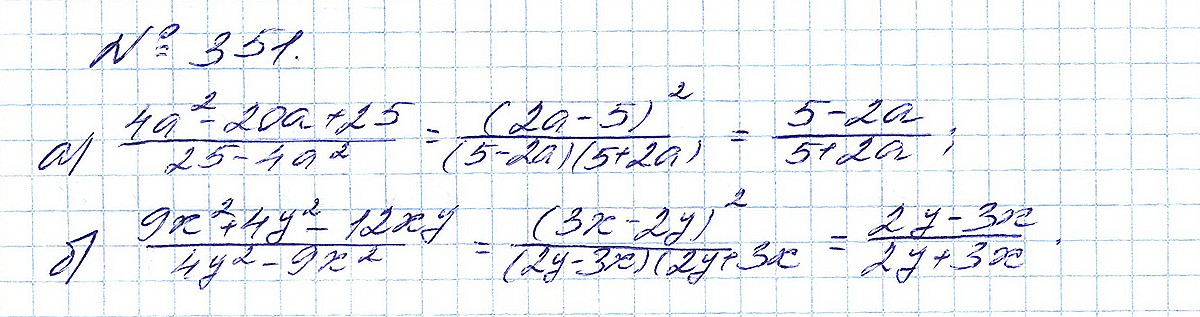 № 351.
а) (4a² - 20a + 25)/(25 - 4a²) = (2a - 5)²/((5 - 2a)(5 + 2a)) = (5 - 2a)/(5 + 2a);
б) (9x² + 4y² - 12xy)/(4y² - 9x²) = (3x - 2y)²/((2y - 3x)(2y + 3x) = (2y - 3x)/(2y + 3x).